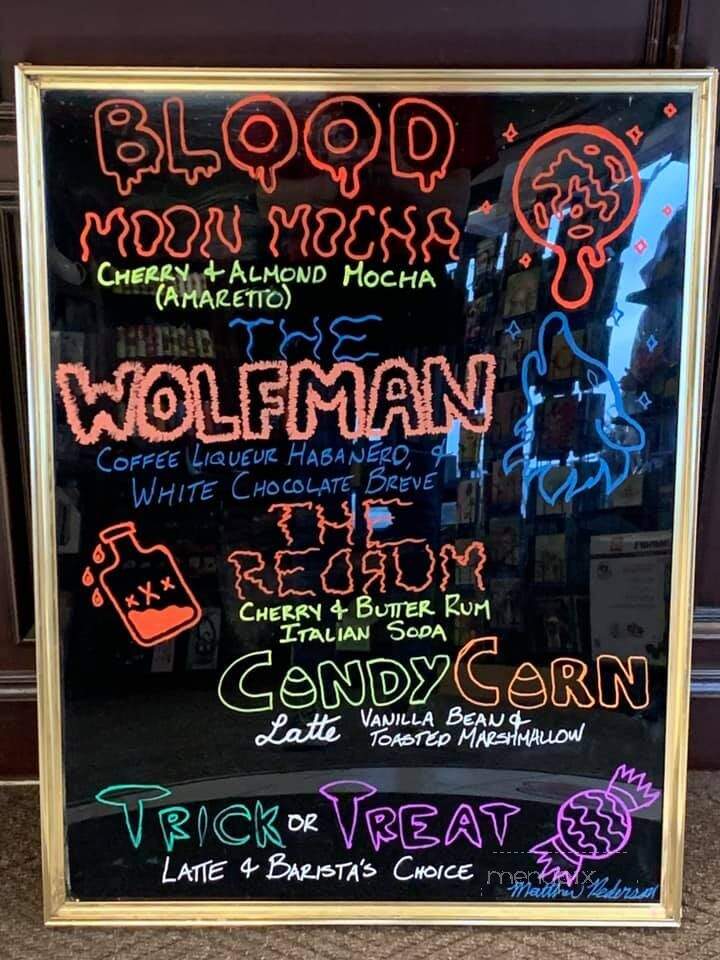 BLOOD
MOON MOCHA
CHERRY + ALMOND MOCHA
(AMARETTO)
THE
WOLFMAN
COFFEE LIQUEUR HABANERO, &
WHITE CHOCOLATE BREVE
THE
REDRUM
XXX
CHERRY & BUTTER RUM
ITALIAN SODA
CANDY CORN
Latte VANILLA BEAN &
TOASTED MARSHMALLOW
TRICK OR TREAT
LATTE & BARISTA'S CHOICE
menupix
Matthew Pederson